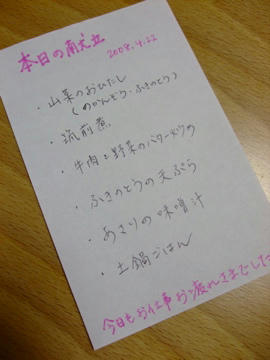 本日の献立
2008.4.22
・山菜のおひたし
(のかんぞう・ふきのとう)
・筑前煮
・牛肉と野菜のバターソテー
・ふきのとうの天ぷら
・あさりの味噌汁
・土鍋ごはん
今日もお仕事お疲れさまでした